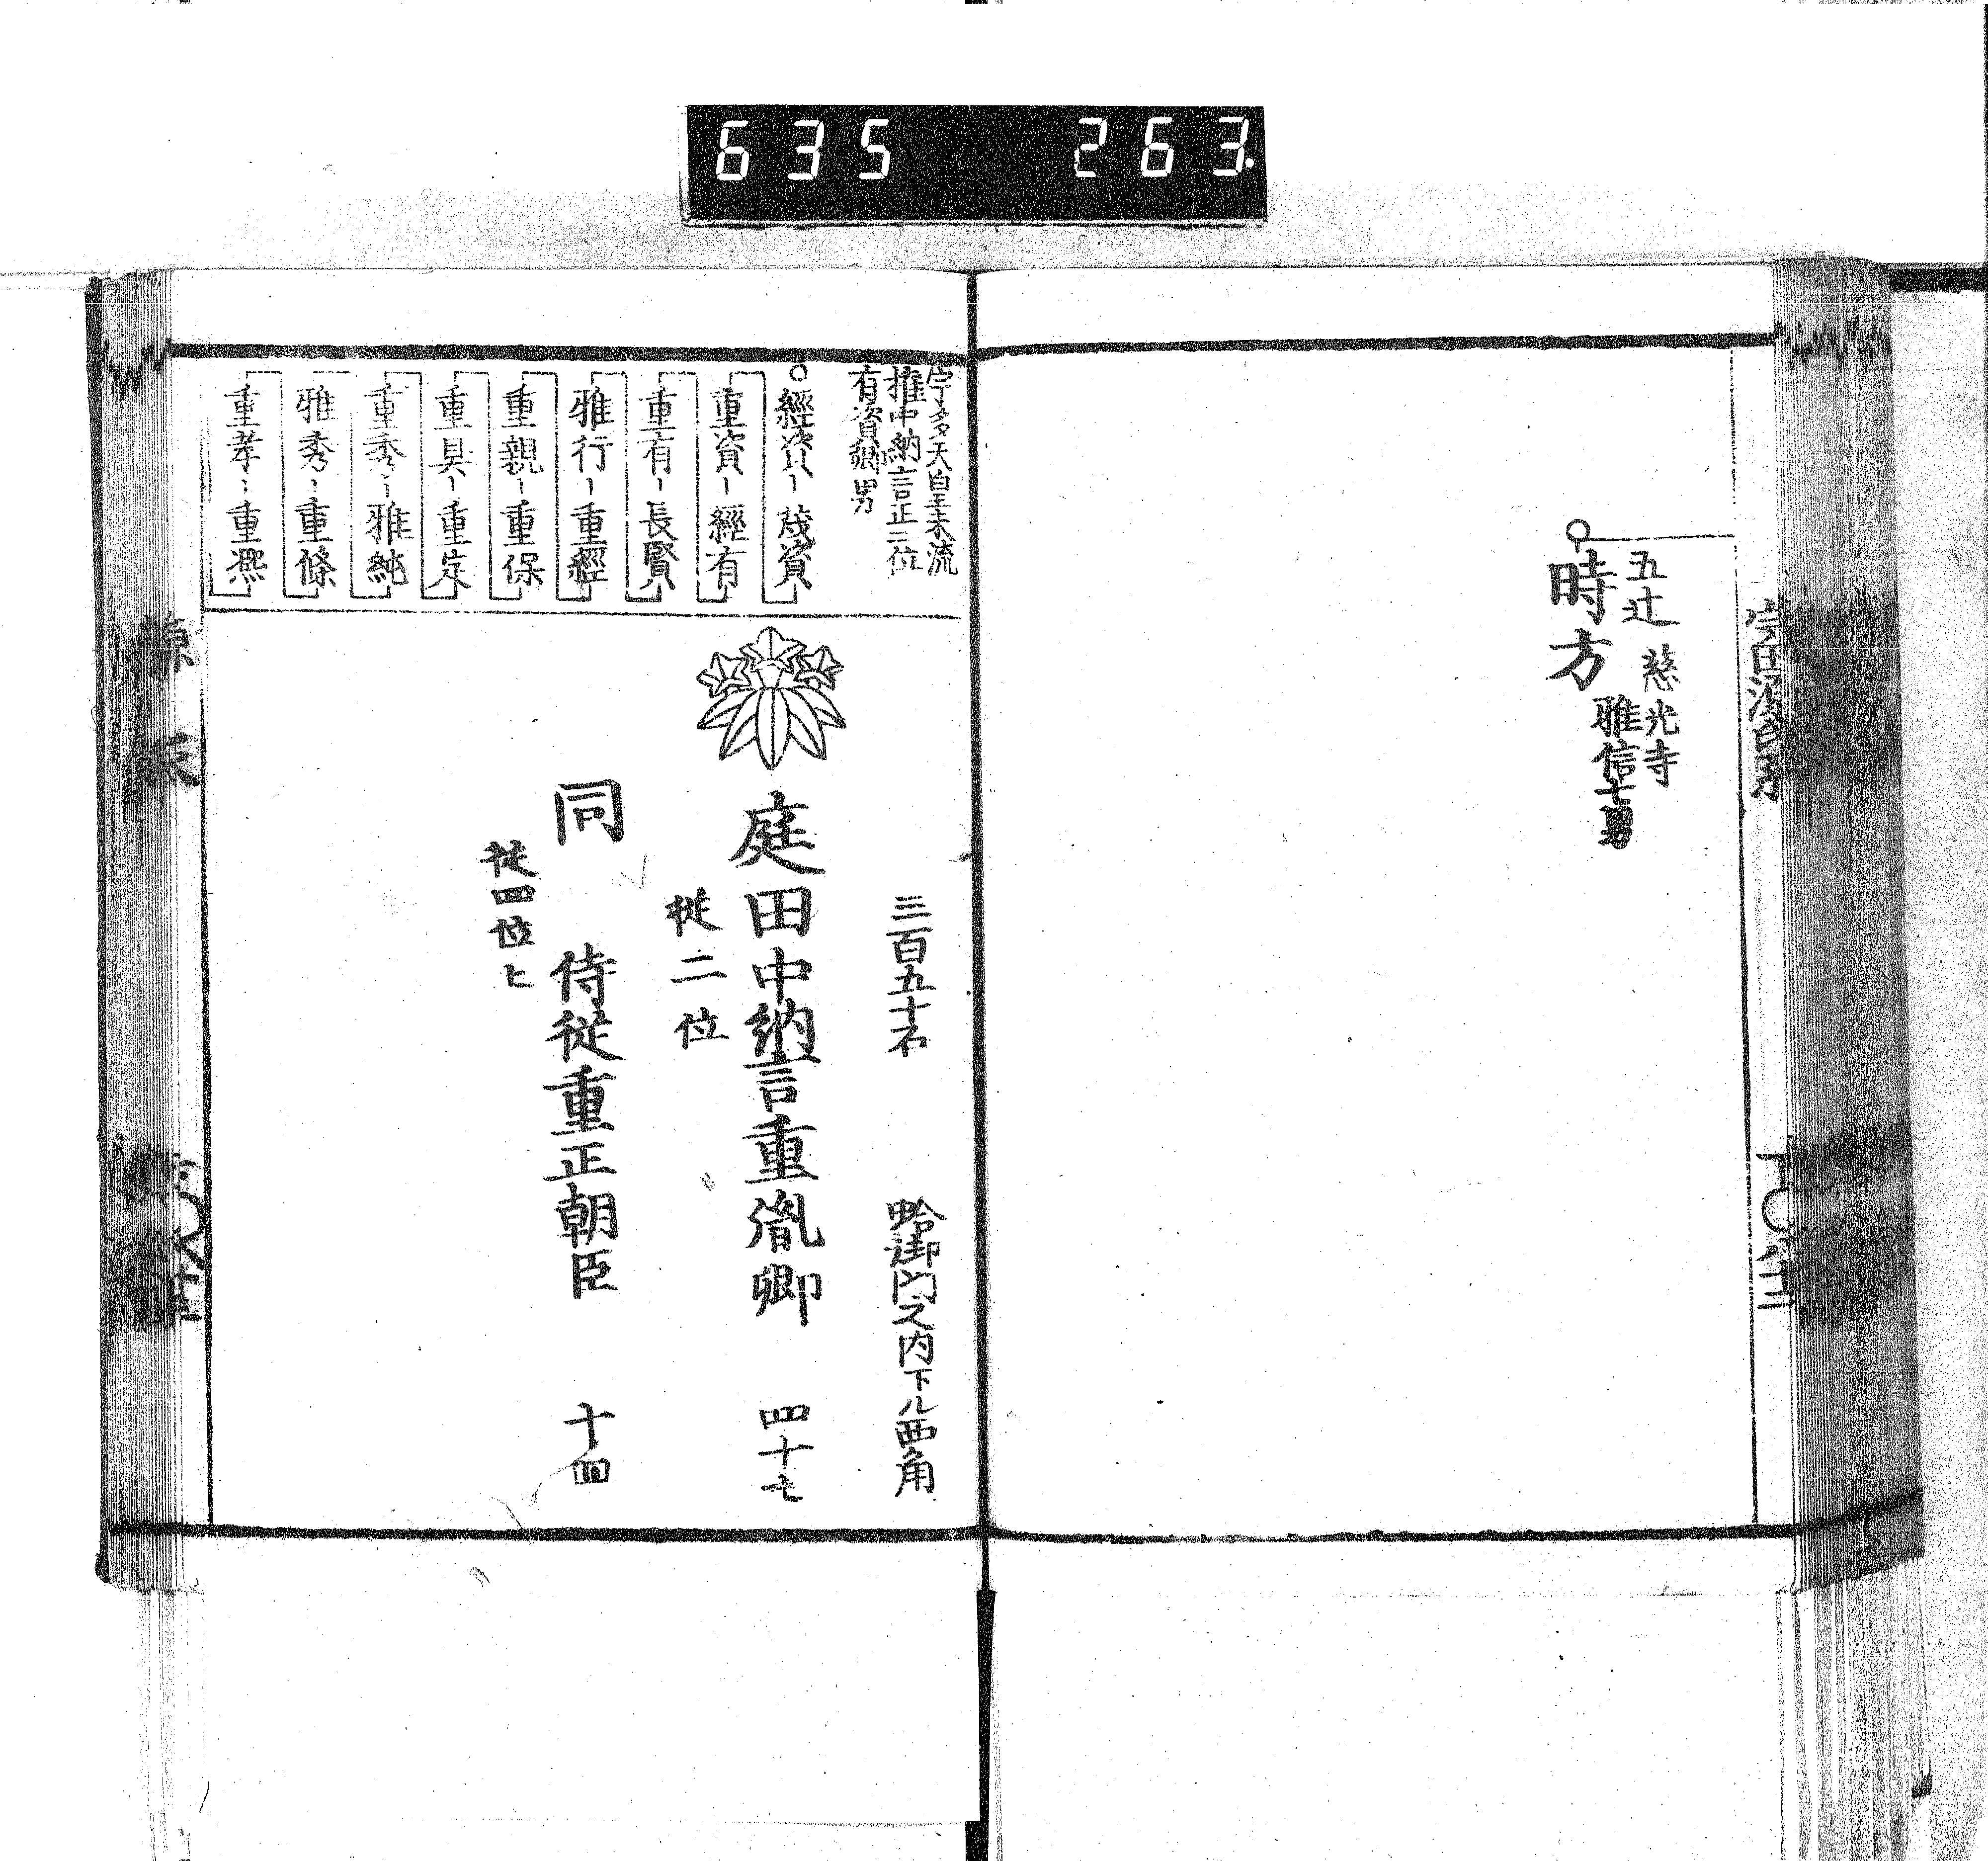 635 263.
五辻 慈光寺
時方
雅信七男
宇多天皇末流
権中納言正二位
有資卿男
經資 茂資
重資 經有
重有 長賢
雅行 重經
重親 重保
重具 重定
重秀 雅純
雅秀 重條
重孝 重熈
三百五十石
蛤御門之内下ル西角
庭田中納言重胤卿 四十七
從二位
同 侍從重正朝臣 十四
從四位上